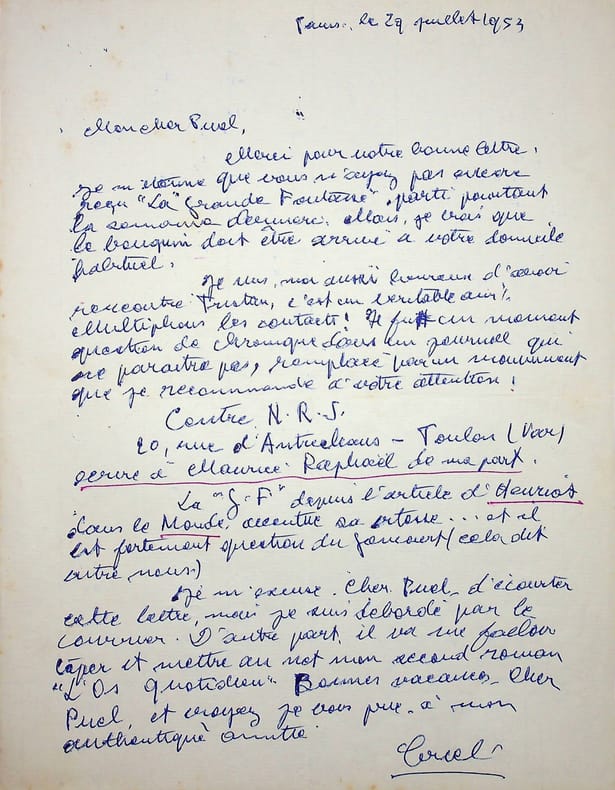 Paris, le 29 juillet 1953
Mon cher Puel,
Merci pour votre bonne lettre.
Je m'étonne que vous n'ayez pas encore
reçu "La Grande Fontaine", parti pourtant
la semaine dernière. Mais, je crois que
le bouquin doit être arrivé à votre domicile
habituel.
Je suis, moi aussi heureux d'avoir
rencontré Tristan, c'est un véritable ami!
Multiplions les contacts! Il fut un moment
question de chronique dans un journal qui
ne paraîtra pas, remplacé par un mouvement
que je recommande à votre attention!
Contre N.R.S.
20, rue d' - Toulon (Var)
écrire à Maurice Raphaël de ma part.
La "G.F" depuis l'article d'Henriot
dans le Monde, accentue sa ... et il
est fortement question du Goncourt (cela dit
entre nous.)
Je m'excuse, Cher Puel, d'écourter
cette lettre, mais je suis débordé par le
courrier. D'autre part, il va me falloir
taper et mettre au net mon second roman
"L'Os Quotidien" Bonnes vacances, Cher
Puel, et croyez je vous prie, à mon
authentique amitié